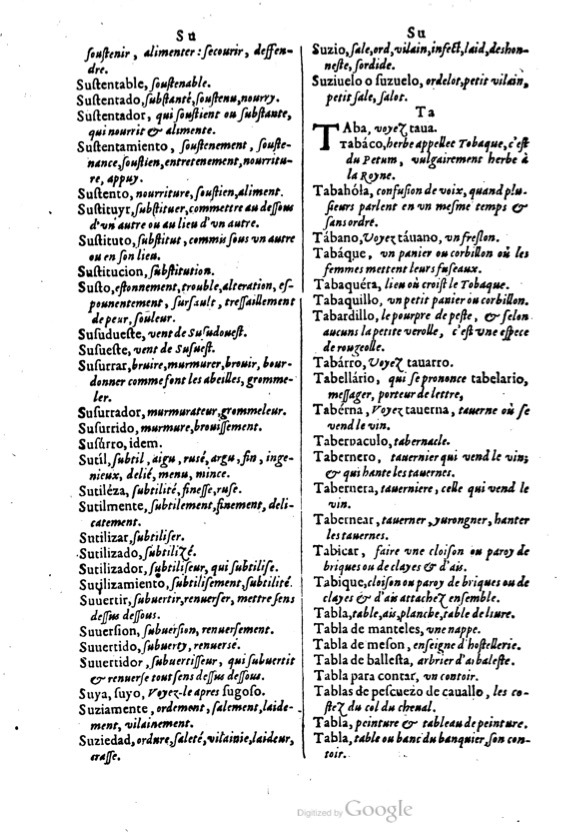 Su
souſtenir, alimenter: ſecourir, deffen-
dre.
Suſtentable, ſouſtenable.
Suſtentado, ſubſtanté, ſouſtenu, nourry.
Suſtentador, qui ſouſtient ou ſubſtante,
qui nourrit & alimente.
Suſtentamiento, ſouſtenement, ſouſte-
nance, ſouſtien, entretenement, nourritu-
re, appuy.
Suſtento, nourriture, ſouſtien, aliment.
Suſtituyr, ſubſtituer, commettre au deſſous
d'vn autre ou au lieu d'vn autre.
Suſtituto, ſubſtitut, commis ſous vn autre
ou en ſon lieu.
Suſtitucion, ſubſtitution.
Suſto, eſtonnement, trouble, alteration, eſ-
pouuentement, ſurſault, treſſaillement
de peur, ſouleur.
Suſudueſte, vent de Suſudoueſt.
Suſueſte, vent de Suſueſt.
Suſurrar, bruire, murmurer, brouir, bour-
donner comme font les abeilles, gromme-
ler.
Suſurrador, murmurateur, grommeleur.
Suſurrido, murmure, brouiſſement.
Suſúrro, idem.
Sutíl, ſubtil, aigu, ruſé, argu, fin, inge-
nieux, delié, menu, mince.
Sutiléza, ſubtilité, fineſſe, ruſe.
Sutilmente, ſubtilement, finement, deli-
catement.
Sutilizar, ſubtiliſer.
Sutilizado, ſubtilizé.
Sutilizador, ſubtiliſeur, qui ſubtiliſe.
Sutilizamiento, ſubtiliſement, ſubtilité.
Suuertir, ſubuertir, renuerſer, mettre ſens
deſſus deſſous.
Suuerſion, ſubuerſion, renuerſement.
Suuertido, ſubuerty, renuersé.
Suuertidor, ſubuertiſſeur, qui ſubuertit
& renuerſe tout ſens deſſus deſſous.
Suya, ſuyo, Voyez-le apres ſugoſo.
Suziamente, ordement, ſalement, laide-
ment, vilainement.
Suziedad, ordure, ſaleté, vilainie, laideur,
craſſe.
Su
Suzio, ſale, ord, vilain, infect, laid, deshon-
neſte, ſordide.
Suziuelo o ſuzuelo, ordelot, petit vilain,
petit ſale, ſalot.
Ta
TAba, voyez taua.
Tabáco, herbe appellee Tobaque, c'eſt
du Petum, vulgairement herbe à
la Royne.
Tabahóla, confuſion de voix, quand plu-
ſieurs parlent en vn meſme temps &
ſans ordre.
Tábano, Voyez táuano, vn freſlon.
Tabáque, vn panier ou corbillon où les
femmes mettent leurs fuſeaux.
Tabaquéra, lieu où croiſt le Tobaque.
Tabaquillo, vn petit panier ou corbillon.
Tabardillo, le pourpre de peſte, & ſelon
aucuns la petite verolle, c'eſt vne eſpece
de rougeolle.
Tabárro, Voyez tauarro.
Tabellário, qui ſe prononce tabelario,
meſſager, porteur de lettre,
Tabérna, Voyez tauerna, tauerne où ſe
vend le vin.
Tabernaculo, tabernacle.
Tabernero, tauernier qui vend le vin;
& qui hante les tauernes.
Tabernera, tauerniere, celle qui vend le
vin.
Tabernear, tauerner, yurongner, hanter
les tauernes.
Tabicar, faire vne cloiſon ou paroy de
briques ou de clayes & d'ais.
Tabique, cloiſon ou paroy de briques ou de
clayes & d'ais attachez enſemble.
Tabla, table, ais, planche, table de liure.
Tabla de manteles, vne nappe.
Tabla de meſon, enſeigne d'hoſtellerie.
Tabla de balleſta, arbrier d'arbaleſte.
Tabla para contar, vn contoir.
Tablas de peſcuezo de cauallo, les co-
ſtez du col du cheual.
Tabla, peinture & tableau de peinture.
Tabla, table ou banc du banquier, ſon con-
toir.
Digitized by Google